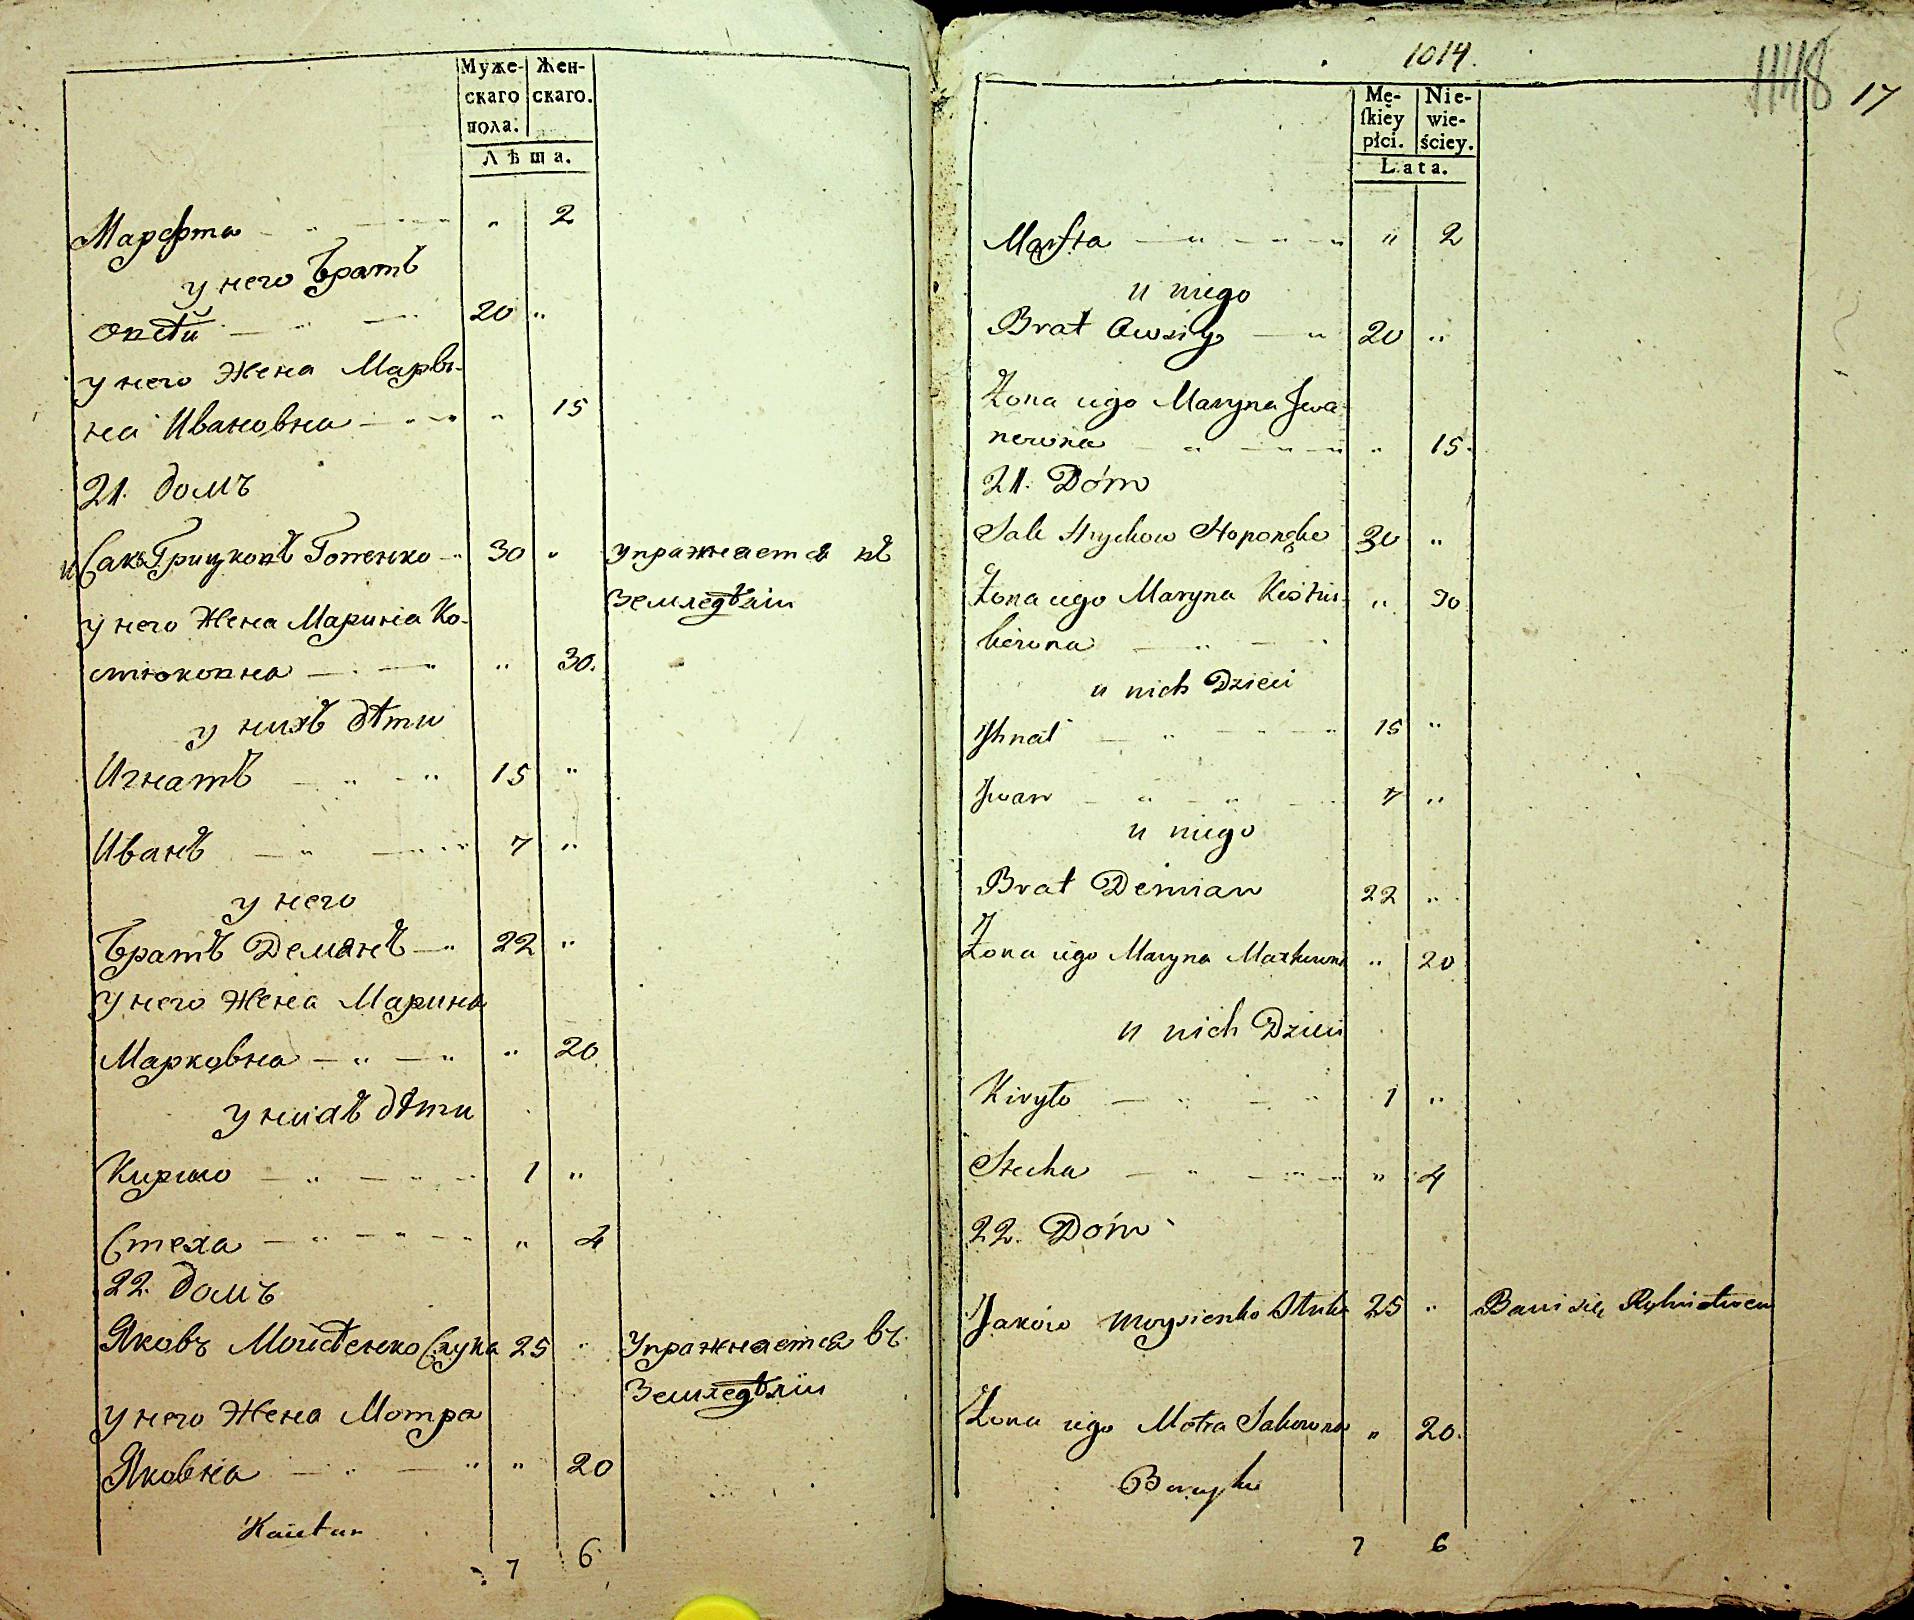 Муже- Жен-
скаго скаго.
пола.
Лѣта.
Марфта " 2
у него братъ
Овсѣй 20 "
у него Жена Мары-
на Ивановна " 15
21. домъ
Сакъ Грицковъ 30 " упражняется въ
Земледѣліи
у него Жена Марина Ко-
стюковна " 30.
у нихъ дѣти
Игнатъ 15 "
Иванъ 7 "
у него
Братъ Демянъ 22 "
у него Жена Марина
Марковна " 20
у нихъ дѣти
Кирило 1 "
Стеха " 4
22. домъ
Яковъ Мойсѣенко 25 " Упражняется въ
Земледѣліи
у него Жена Мотра
Яковна " 20
7 6
1014.
1118 17
Mę- Nie-
ſkiéy wie-
płci. ściey.
Lata.
Marfta " 2
u niego
Brat Owsiy 20 "
Zona iego Maryna Jwa-
nowna " 15.
21. Dóm
Sak Hryckow 30 "
Zona iego Maryna Kostiu- " 30
kowna
u nich Dzieci
Jhnat 15 "
Jwan 7 "
u niego
Brat Demian 22 "
Zona iego Maryna Markowna " 20
u nich Dzieci
Kiryło 1 "
Stecha " 4
22. Dóm
Jaków Moysienko 25 " Bawi się Rolnictwem
Zona iego Motra Jakowna " 20.
7 6